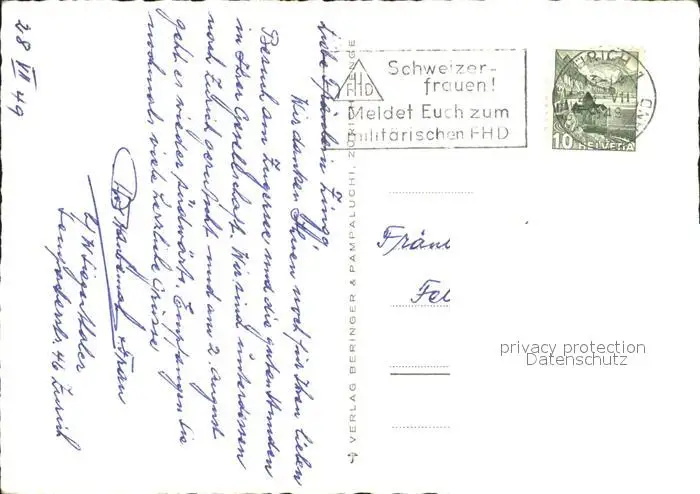 28 VII 49
Liebe Fräulein Zingg!
Wir danken Ihnen noch für Ihren lieben
Besuch am Zugersee und die guten Stunden
in Ihrer Gesellschaft. Wir sind unterdessen
nach Zürich gerutscht und am 2. August
geht es wieder südwärts. Empfangen Sie
nochmals viele herzliche Grüsse
Frau
Zürich
VERLAG BERINGER & PAMPALUCHI, ZÜRICH
Schweizer-
frauen!
FHD
Meldet Euch zum
militärischen FHD
ZÜRICH 1
VII
10 HELVETIA
Fräu
Fel
privacy protection
Datenschutz